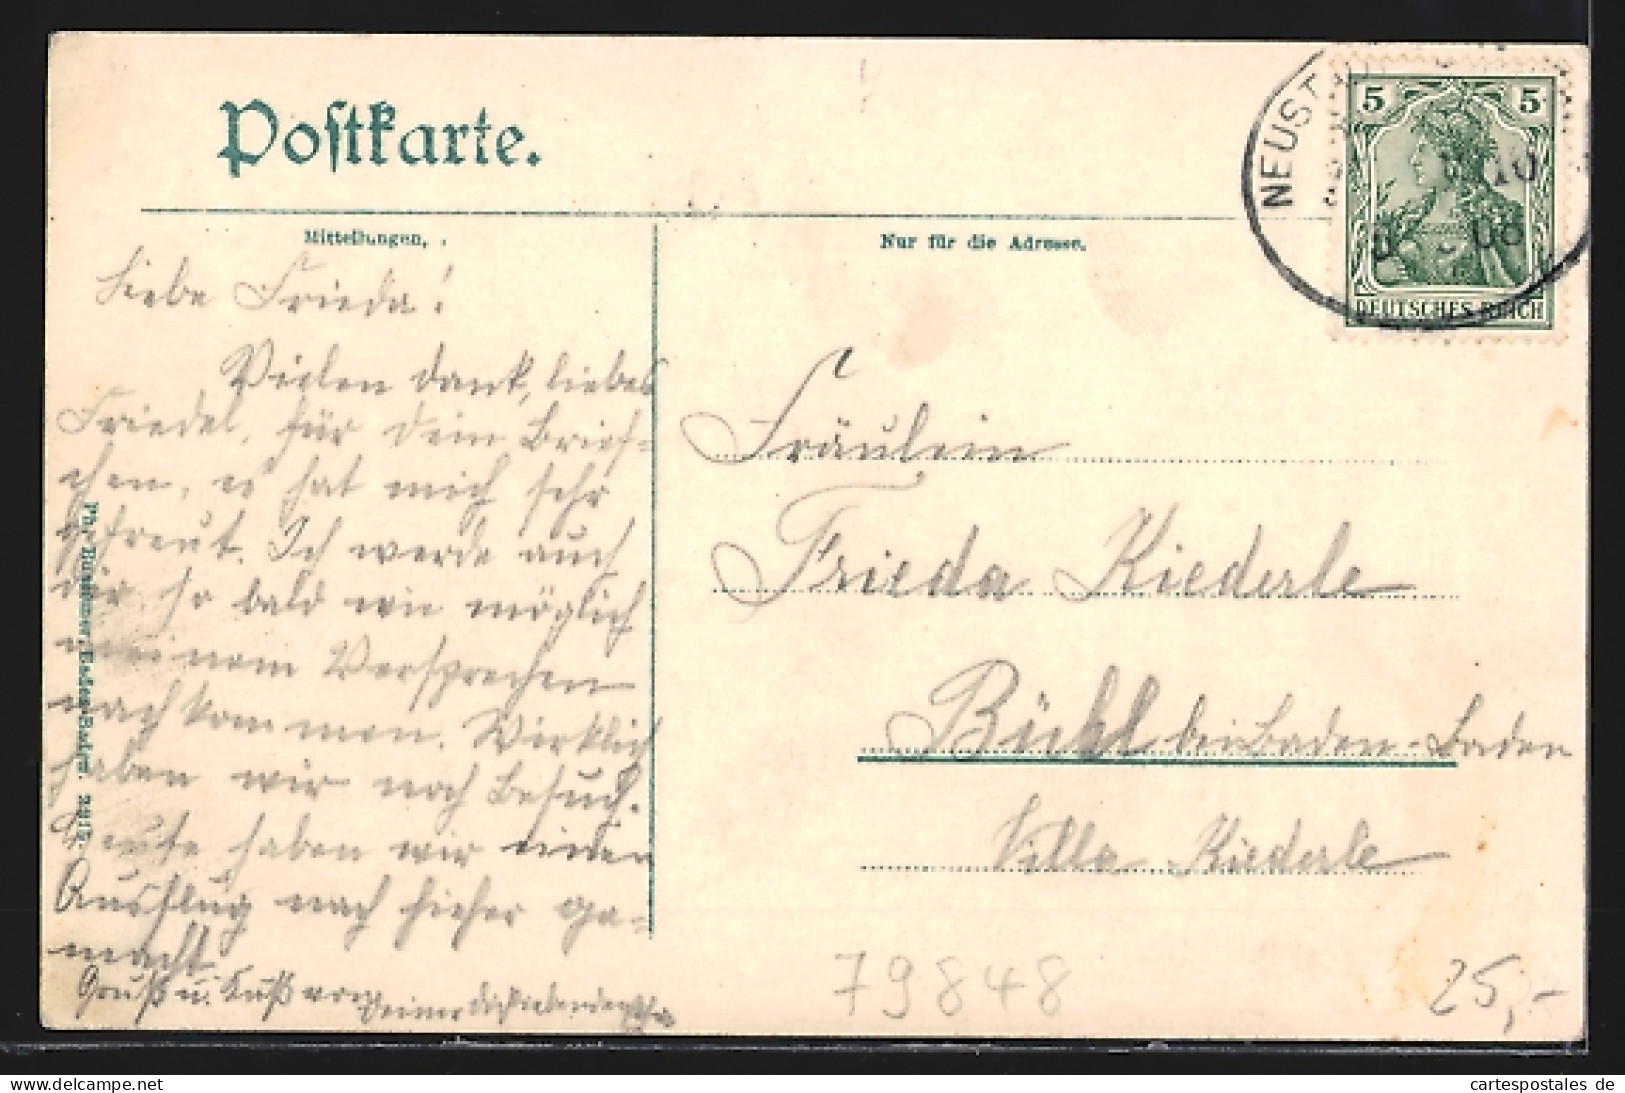 Postkarte.
NEUST
5 5
10
08
DEUTSCHES REICH
Mitteilungen.
Nur für die Adresse.
Liebe Frieda!
Vielen Dank, liebes
Friedel, für dein Brief-
chen, es hat mich sehr
gefreut. Ich werde auch
dir so bald wie möglich
meinem Versprechen
nachkommen. Wirklich
haben wir noch Besuch.
Heute haben wir einen
Ausflug nach hieher ge-
macht.
Gruß u. Kuß von Deiner dich liebenden
Fräulein
Frieda Kiederle
Bühl bei Baden-Baden
Villa Kiederle
Baden-Baden. 2215.
79848
25,-
delcampe.net
cartespostales de